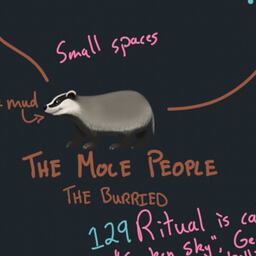 Small spaces
mud
THE MOLE PEOPLE
THE BURRIED
129 Ritual is ca
Sky", Ge